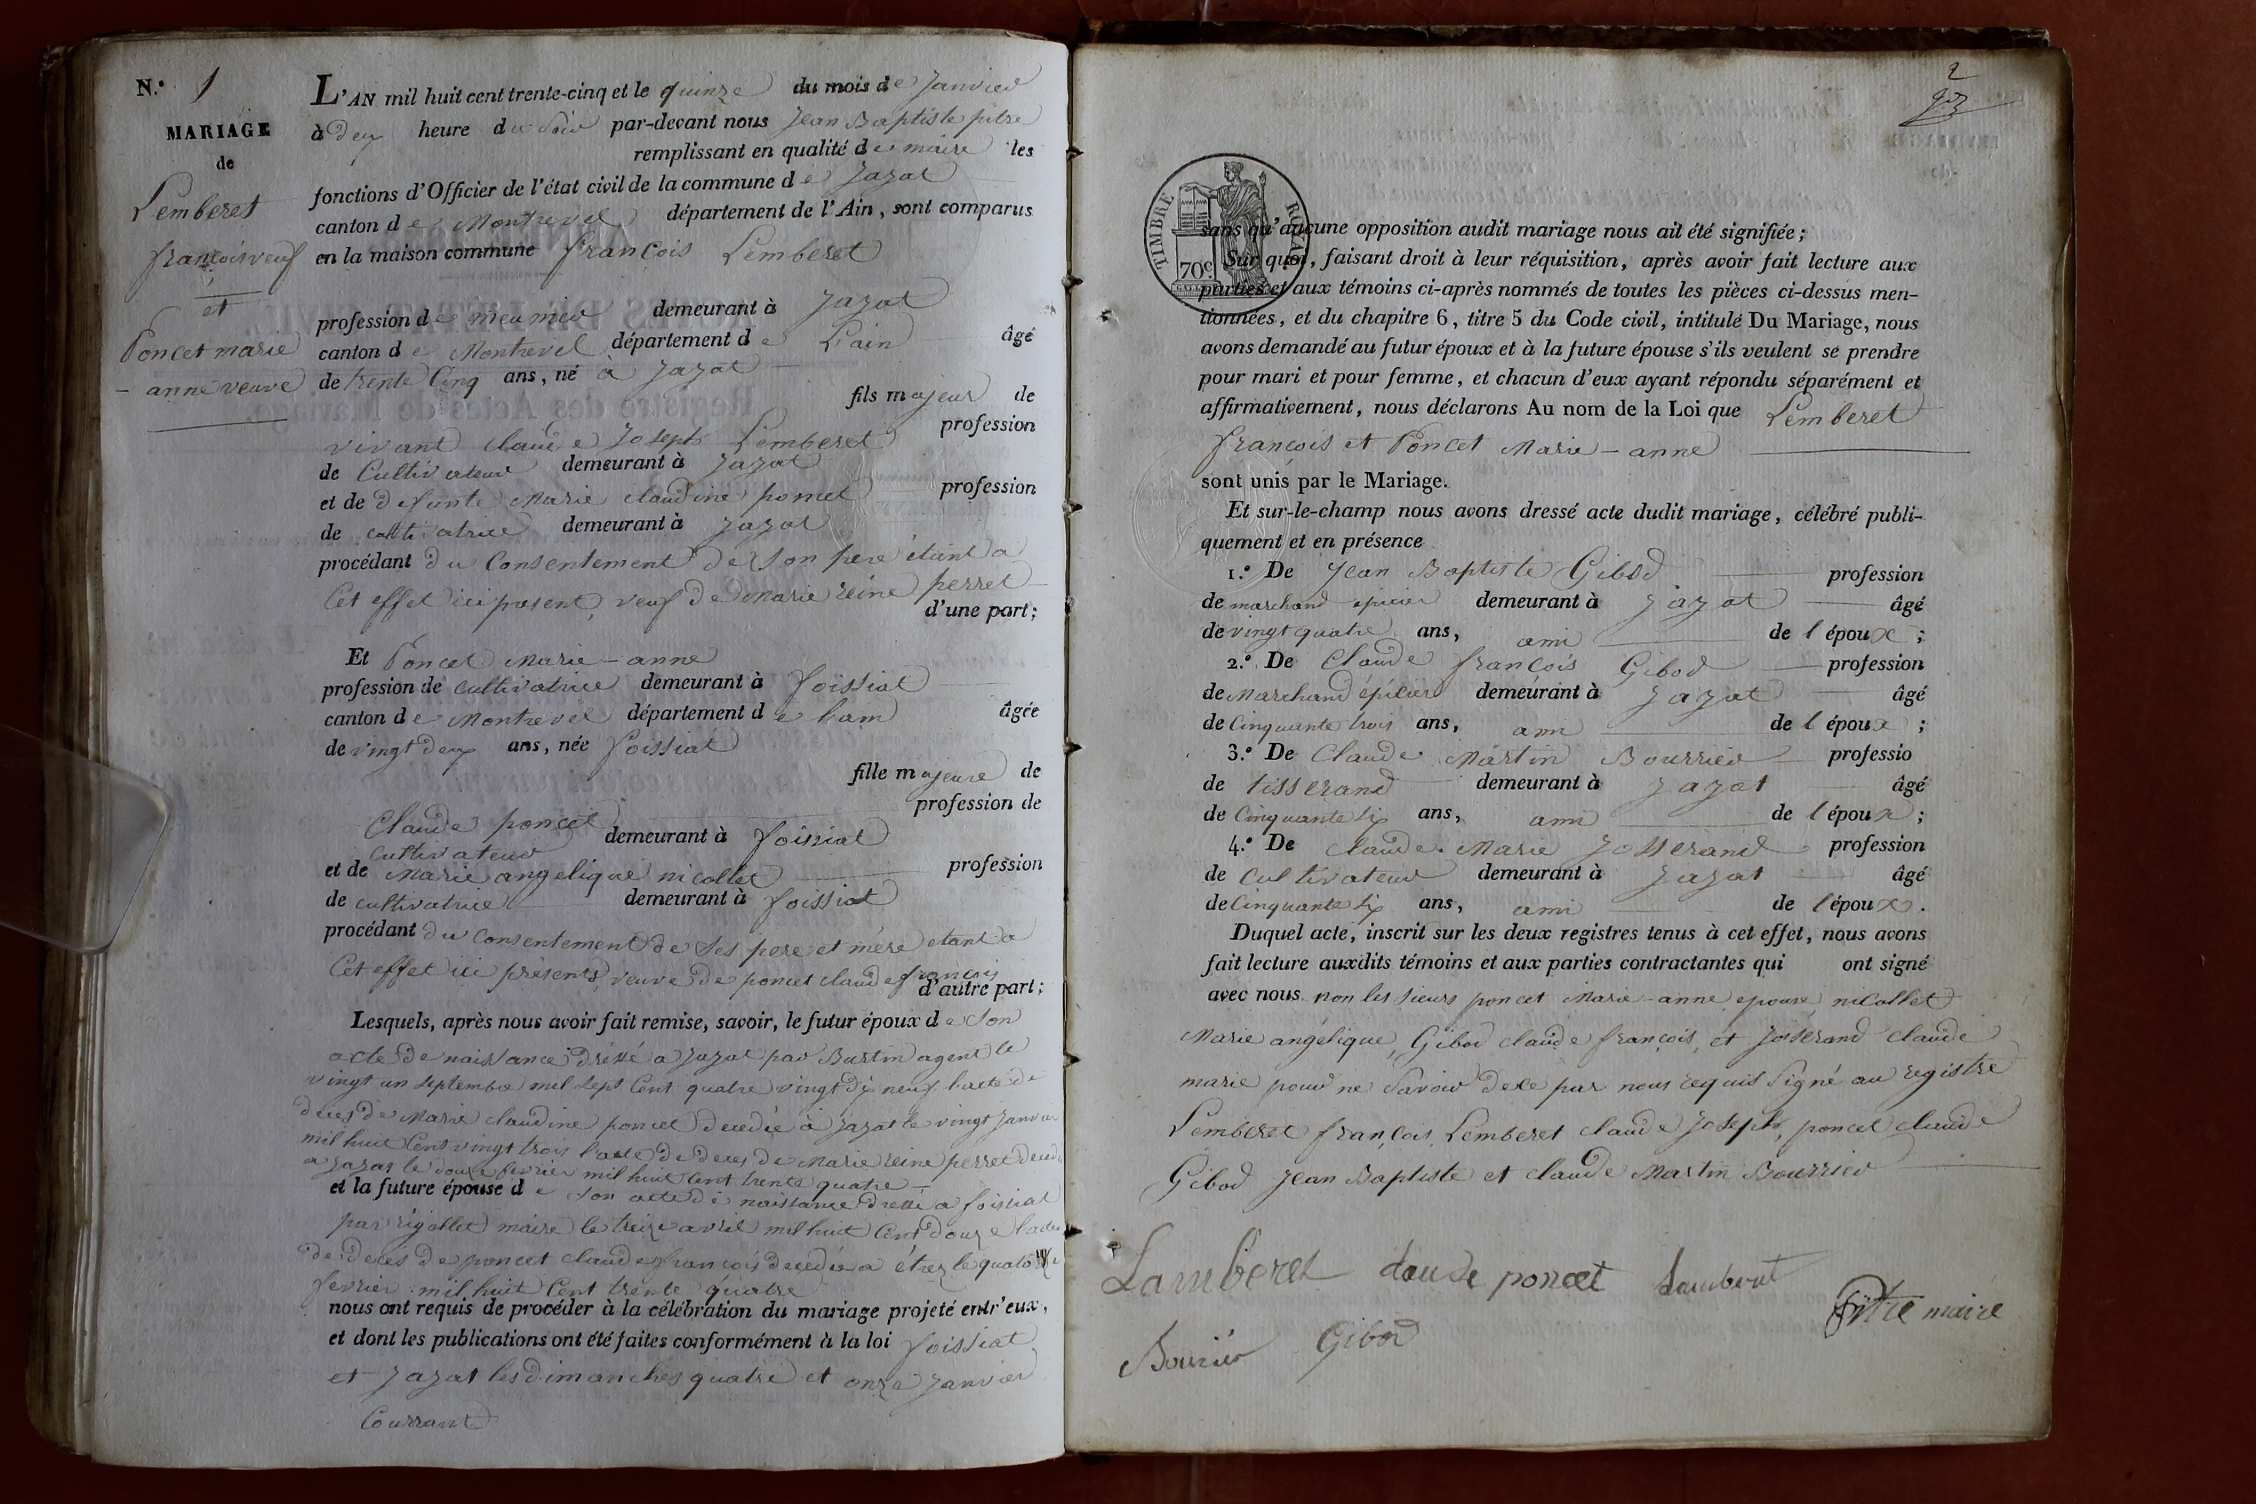 N.º 1
MARIAGE
de
Lemberet
françois veuf
et
Poncet marie
- anne veuve
L'AN mil huit cent trente-cinq et le quinze du mois de Janvier
à deux heure du Soir par-devant nous Jean Baptiste pitre
remplissant en qualité de maire les
fonctions d'Officier de l'état civil de la commune de Jayat
canton de Montrevel département de l'Ain, sont comparus
en la maison commune françois Lemberet
profession de meunier demeurant à Jayat
canton de Montrevel département de L'ain âgé
de trente Cinq ans, né à Jayat
fils majeur de
vivant claude Joseph Lemberet profession
de Cultivateur demeurant à Jayat
et de defunte Marie claudine poncet profession
de cultivatrice demeurant à Jayat
procédant du Consentement de Son pere étant a
Cet effet ici present, veuf de Marie reine perret
d'une part;
Et Poncet Marie-anne
profession de cultivatrice demeurant à foissiat
canton de Montrevel département de l'ain âgée
de vingt deux ans, née foissiat
fille majeure de
Claude poncet profession de
Cultivateur demeurant à foissiat
et de Marie angelique nicollet profession
de cultivatrice demeurant à foissiat
procédant du consentement de Ses pere et mére etant a
Cet effet ici présents, veuve de poncet claude françois
d'autre part;
Lesquels, après nous avoir fait remise, savoir, le futur époux de Son
acte de naissance dréssé a Jayat par Burtin agent le
vingt un septembre mil sept Cent quatre vingt dix neuf l'acte de
deces de Marie claudine poncet decedée à Jayat le vingt Janvier
mil huit Cent vingt trois l'acte de deces de Marie reine perret decedé
a Jayat le douze fevrier mil huit Cent trente quatre
et la future épouse de Son acte de naissance dressé a foissiat
par rigollet maire le treize avril mil huit Cent douze l'acte
de deces de poncet claude françois decedé a étrez le quatorze
fevrier mil huit Cent trente quatre
nous ont requis de procéder à la célébration du mariage projeté entr'eux,
et dont les publications ont été faites conformément à la loi foissiat
et Jayat les dimanches quatre et onze Janvier
Courrant
2
TIMBRE ROYAL
70c
sans qu'aucune opposition audit mariage nous ait été signifiée;
Sur quoi, faisant droit à leur réquisition, après avoir fait lecture aux
parties et aux témoins ci-après nommés de toutes les pièces ci-dessus men-
tionnées, et du chapitre 6, titre 5 du Code civil, intitulé Du Mariage, nous
avons demandé au futur époux et à la future épouse s'ils veulent se prendre
pour mari et pour femme, et chacun d'eux ayant répondu séparément et
affirmativement, nous déclarons Au nom de la Loi que Lemberet
françois et Poncet Marie-anne
sont unis par le Mariage.
Et sur-le-champ nous avons dressé acte dudit mariage, célébré publi-
quement et en présence
1.º De Jean Baptiste Gibod profession
de marchand epicier demeurant à Jayat âgé
de vingt quatre ans, ami de l'époux;
2.º De Claude françois Gibod profession
de Marchand épicier demeurant à Jayat âgé
de Cinquante trois ans, ami de l'époux;
3.º De Claude Martin Bourrier professio
de tisserand demeurant à Jayat âgé
de Cinquante six ans, ami de l'époux;
4.º De claude Marie Josserand profession
de cultivateur demeurant à Jayat âgé
de Cinquante six ans, ami de l'époux.
Duquel acte, inscrit sur les deux registres tenus à cet effet, nous avons
fait lecture auxdits témoins et aux parties contractantes qui ont signé
avec nous non les sieurs poncet Marie-anne epouse nicollet
Marie angélique, Gibod claude françois, et Josserand claude
marie pour ne Savoir de ce par nous requis Signé au registre
Lemberet françois, Lemberet claude Joseph, poncet claude
Gibod Jean Baptiste et claude Martin Bourrier
Lamberet claude poncet Lamberet
pitre maire
Bourier Gibod